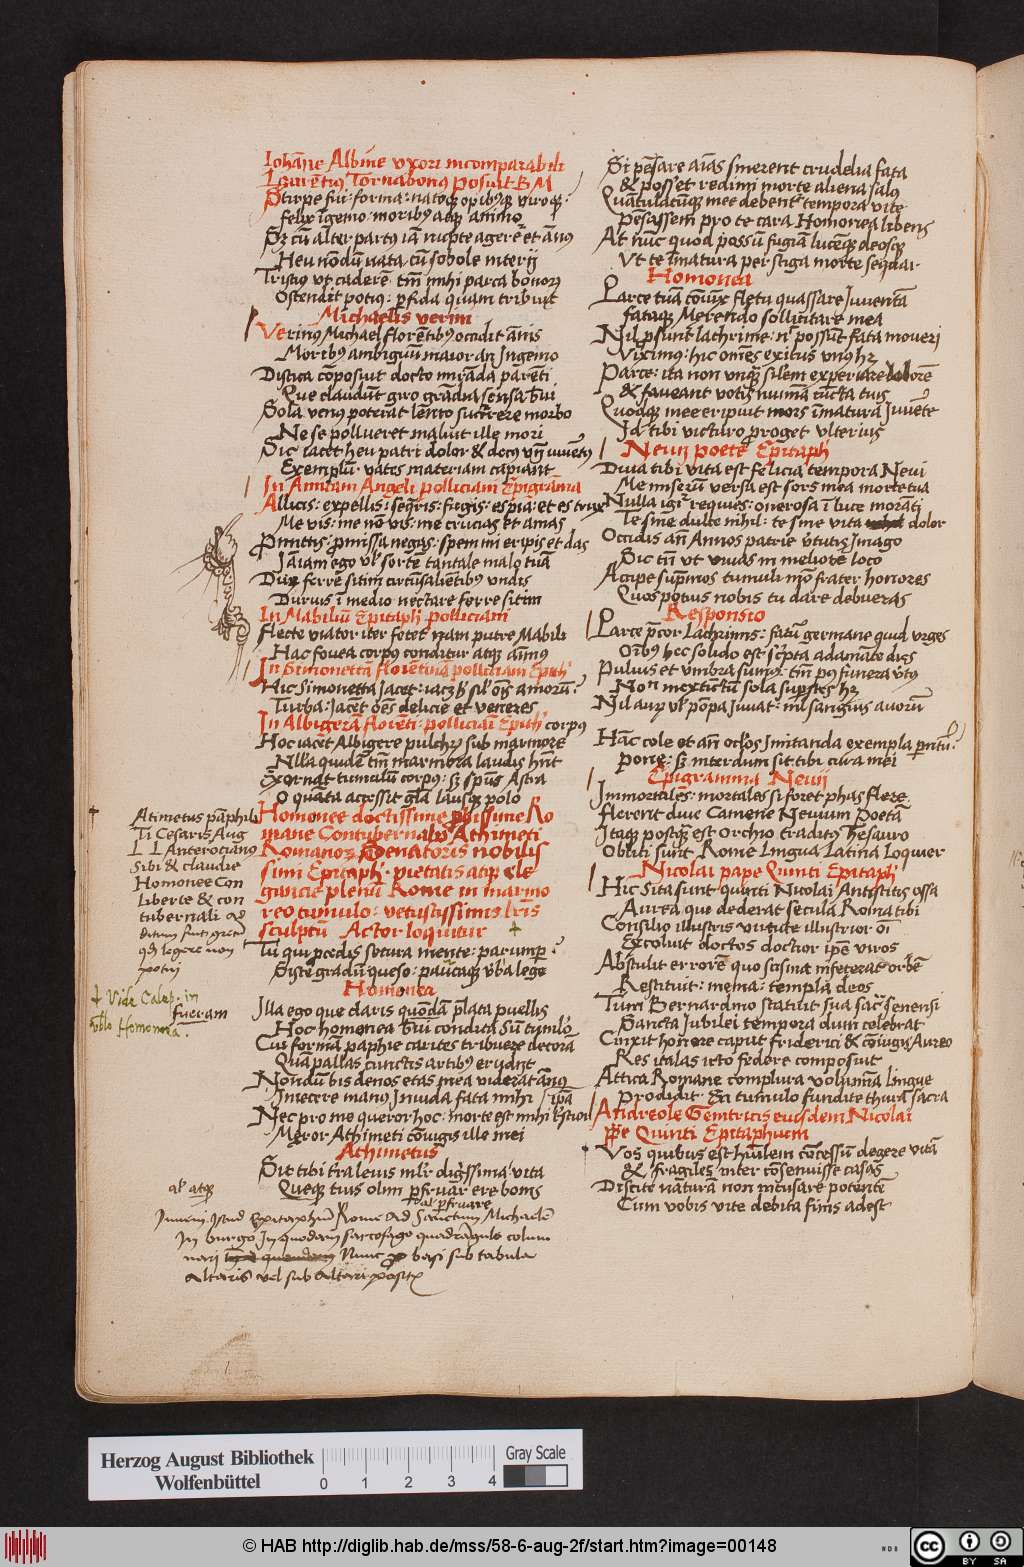 Iohāne Albine vxori incomparabili
Laurētius Tornabonus posuit B M
Stirpe fui: forma: natoq; opibusq; viroq;
Felix īgenio moribus atq; animo
Sz cū alter partus iā nupte ageret et ānus
Heu nōdū nata cū sobole interij
Tristius vt caderē tm̄ mihi parca bonorꝫ
Ostendit potius: perfida quam tribuit
Michaelis verini
Verinus Michael florētibus occidit ānis
Moribus ambiguū maior an Ingenio
Disticha cōposuit docto mirāda parēti
Que claudūt giro grādia sensa breui
Sola venus poterat lento succurrere morbo
Ne se pollueret maluit ille mori
Sic iacet heu patri dolor & decus vn̄ iuuētus
Exemplū: vates materiam capiant
In Amicam Angeli polliciani Epigrama
Allicis: expellis: seqris: fugis: es pia: et es trux
Me vis: me nō vis: me crucias et amas
Promittis: promissa negas: spem mi eripis et das
Iā iam ego vel sortē tantale malo tuā
Durum ferre sitim circūsalietibus vndis
Durius ī medio nectare ferre sitim
In Mabiliū Epitaph polliciani
Flecte viator iter fetet nam putre Mabili
Hac fouea corpus conditur atq; aīmus
In Simonettā florentinā polliciani Epith
Hic Simonetta Jacet: iacz hic sil' oīs amorum:
Turba: Jacēt oēs delicie et veneres
In Albigerā florēti: polliciāi Epith corpus
Hoc iacet Albigere pulchrꝫ sub marmore
Nlla quidē tm̄ marmora laudis hn̄t
Exornat tumulū corpus: sz spūs Astra
O quāta accessit gl̄a lausq; polo
Homonee doctissime piissime Ro
mane Contubernalis Athimeti
Romanorꝫ Senatoris nobilis
simi Epitaph pietatis atq; ele
gancie plenū Rome in marmo
reo tumulo: vetustissimis lr̄is
sculptū Actor loquitur +
Atimetus pāphili
Ti Cesaris Aug
L L Anterotianus
Sibi & claudie
Homonee Con
liberte & con
tubernali
legere non
potui
+ Vide Calep. in
vblo Homonea.
fueram
Tu qui pedis secura mente: parumper
Siste gradū queso: paucaq; vba lege
Homonea
Illa ego que claris quōdā plata puellis
Hoc homonea breui condita sū tumlo
Cui formā paphie carites tribuere decorā
Quā pallas cunctis artibus erudit
Nondū bis denos etas mea viderat ānos
Iniecere manus Inuida fata mihi / ipā
Nec pro me queror hoc: morte est mihi tristior
Meror Athimeti cōiugis ille mei
Athimetus
Sit tibi tra leuis mlr dignissima vita
Queq; tuis olim perfruar ere bonis
al' atq;
al' perfruare
Inueni Istud Epitaphiū Rome ad Sanctum Michaelē
In burgo In quodam sarcofago quadrāgulo colum
nari Nunc pro basi sub tabula
altaris vel sub Altari posite
Si pēsare aīas sinerent crudelia fata
& posset redimi morte aliena salus
Quātulacūq; mee debent tempora vite
Pēsassem pro te cara Homonea libens
At nūc quod possū fugiā lucēq; deosq;
Vt te īmatura per stiga morte seqar
Homonea
Parce tuā cōiux fletu quassare Juuentā
Fataq; Merendo sollicitare mea
Nil psunt lachrime: nc possūt fata moueri
Viximus: hic omēs exitus vnus hꝫ
Parce: ita non vnqꝫ silem experiare dolorē
& faueant votis numīa cūcta tuis
Quodq; mee eripuit mors īmatura Juuēte
Id tibi victuro proget vlterius
Neuij poete Epitaph
Dum tibi vita est felicia tempora Neui
Me miserū versa est sors mea morte tua
Nulla igr requies: onerosa ī luce morāti
Te sine dulce nihil: te sine vita dolor
Occidis an̄ Annos patrie vtutis Imago
Sic tn̄ vt viuas in meliore loco
Accipe supmos tumuli mō frater honores
Quos potius nobis tu dare debueras
Responsio
Parce pcor Lachrimis: fatū germane quid vrges
Oībus hec solido est scpta adamāte dies
Puluis et Vmbra sumus: tm̄ pus funera vtus
Non inextictū sola supstes hꝫ
Nil aurꝫ vl' pōpa Juuat: nil sanguis auorū
Hāc cole et an̄ oclos Imitanda exempla pentū:
pone: sꝫ interdum sit tibi cura mei
Epigramma Neuij
Immortalēs: mortales si foret phas flere
Flerent diue Camene Neuium Poetā
Itaq; postqꝫ est Orchio traditus Thesauro
Obliti sunt Rome Lingua Latina Loquier
Nicolai pape Quinti Epitaph
Hic Sita sunt quinti Nicolai Antistitis ossa
Aurea que dederat secula Roma tibi
Consilio illustris virtute illustrior oī
Excoluit doctos doctior ipē viros
Abstulit errorē quo scisma infecerat orbē
Restituit: menia: templa deos
Tum Bernardino statuit sua sacra senensi
Sancta Jubilei tempora dum celebrat
Cinxit honore caput friderici & cōiugis Aureo
Res italas icto fedore composuit
Attica Romane complura volumīa lingue
Prodidit: En tumulo fundite thura sacra
Andreole Genitricis eiusdem Nicolai
pape Quinti Epitaphium
Vos quibus est humlem cōcessū degere vitā
& fragiles inter cōsenuisse casas
Discite nāturā non incusare potentē
Cum vobis vite debita finis adest
Herzog August Bibliothek
Wolfenbüttel
0 1 2 3 4
Gray Scale
© HAB http://diglib.hab.de/mss/58-6-aug-2f/start.htm?image=00148
cc BY SA